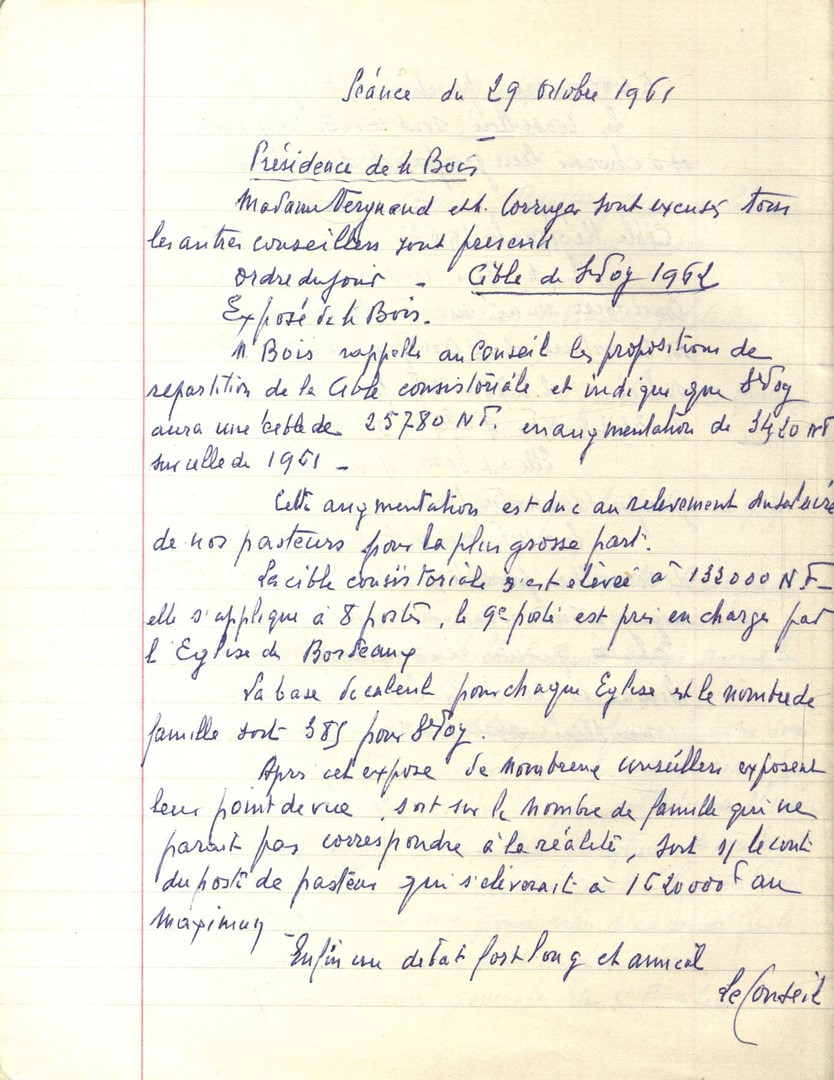 Séance du 29 octobre 1961
Présidence de M Bois
Madame Vergnaud et M. Corruges sont excusés tous
les autres conseillers sont presents
ordre du jour - Cible de Ste Foy 1962
Exposé de M Bois.
M Bois rappelle au Conseil les propositions de
repartition de la Cible consistoriale et indique que Ste Foy
aura une cible de 25780 NF. en augmentation de 3420 NF
sur celle de 1961 -
Cette augmentation est due au relevement du salaire
de nos pasteurs pour la plus grosse part.
La cible consistoriale s'est élevée à 132000 NF -
elle s'applique à 8 postes, le 9e poste est pris en charge par
l'Eglise de Bordeaux
La base de calcul pour chaque Eglise est le nombre de
famille soit 385 pour Ste Foy.
Apres cet expose de nombreux conseillers exposent
leur point de vue, soit sur le nombre de famille qui ne
parait pas correspondre à la réalité, soit s/ le cout
du poste de pasteur qui s'éleverait à 1620000 F au
maximum
Enfin un debat fort long et amical
Le Conseil